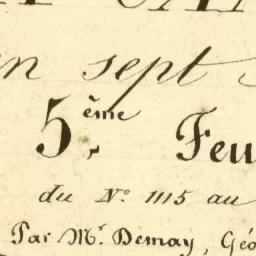 en sept
5.ème Feu
du N.º 1115 au
Par M.r Demay, Géo